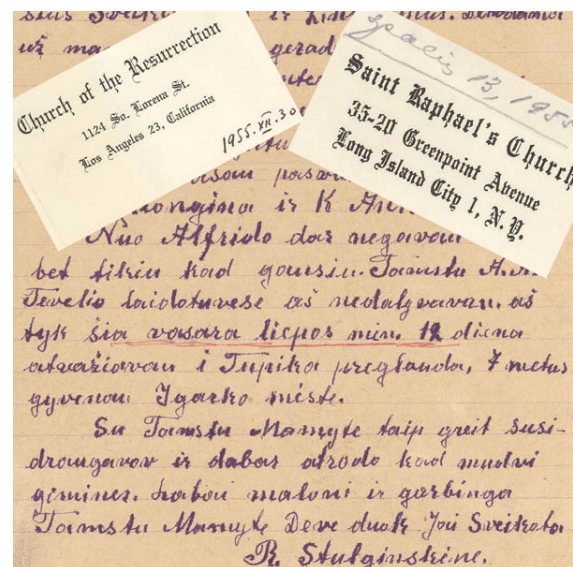 už
gerad
Church of the Resurrection
1124 So. Lorena St.
Los Angeles 23, California
1955.XII.30
spalis 13, 1955
Saint Raphael's Church
35-20 Greenpoint Avenue
Long Island City 1, N. Y.
ongina ir K
Nuo Alfrido dar negavau
bet tikiu kad gausiu. Tamstu
Tevelio laidotuvese aš nedalyvavau. aš
tyk šia vasara liepos min. 12 diena
atvažiavau i Tupika 7 metus
gyvenau Igarko mieste.
Su Tamstu Mamyte taip greit susi-
draugavov ir dabar atrodo kad mudvi
gimines. Labai maloni ir garbinga
Tamstu Mamyte Deve duok Jai Sveikata
R. Stulginskiene.